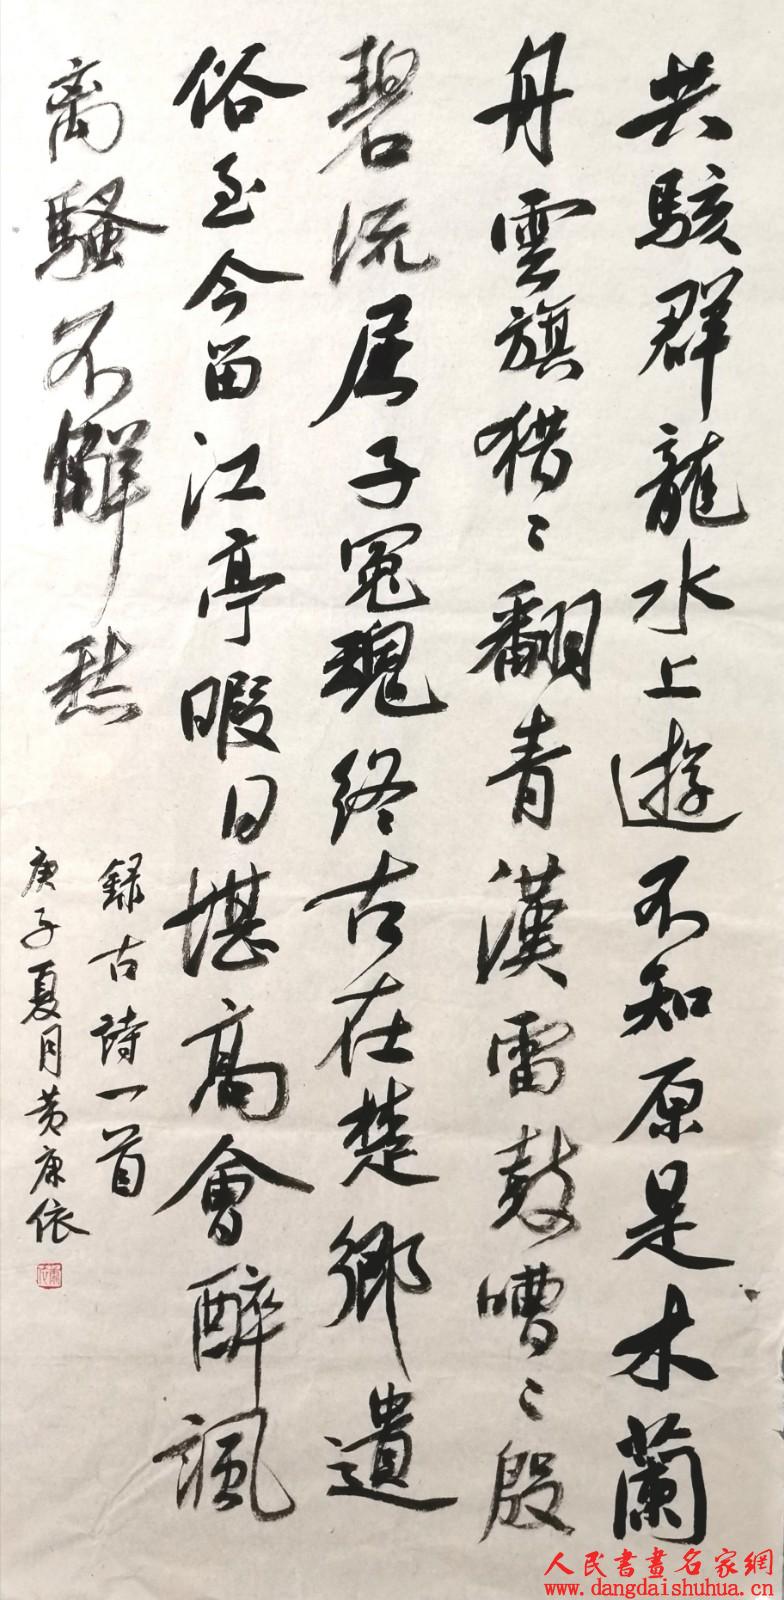 共駭群龍水上遊不知原是木蘭
舟雲旗猎〻翻青漢雷鼓嘈〻殷
碧流屈子冤魂終古在楚鄉遺
俗至今留江亭暇日堪高會醉諷
离騷不懈愁
錄古詩一首
庚子夏月黄康依
人民書畫名家網
www.dangdaishuhua.cn